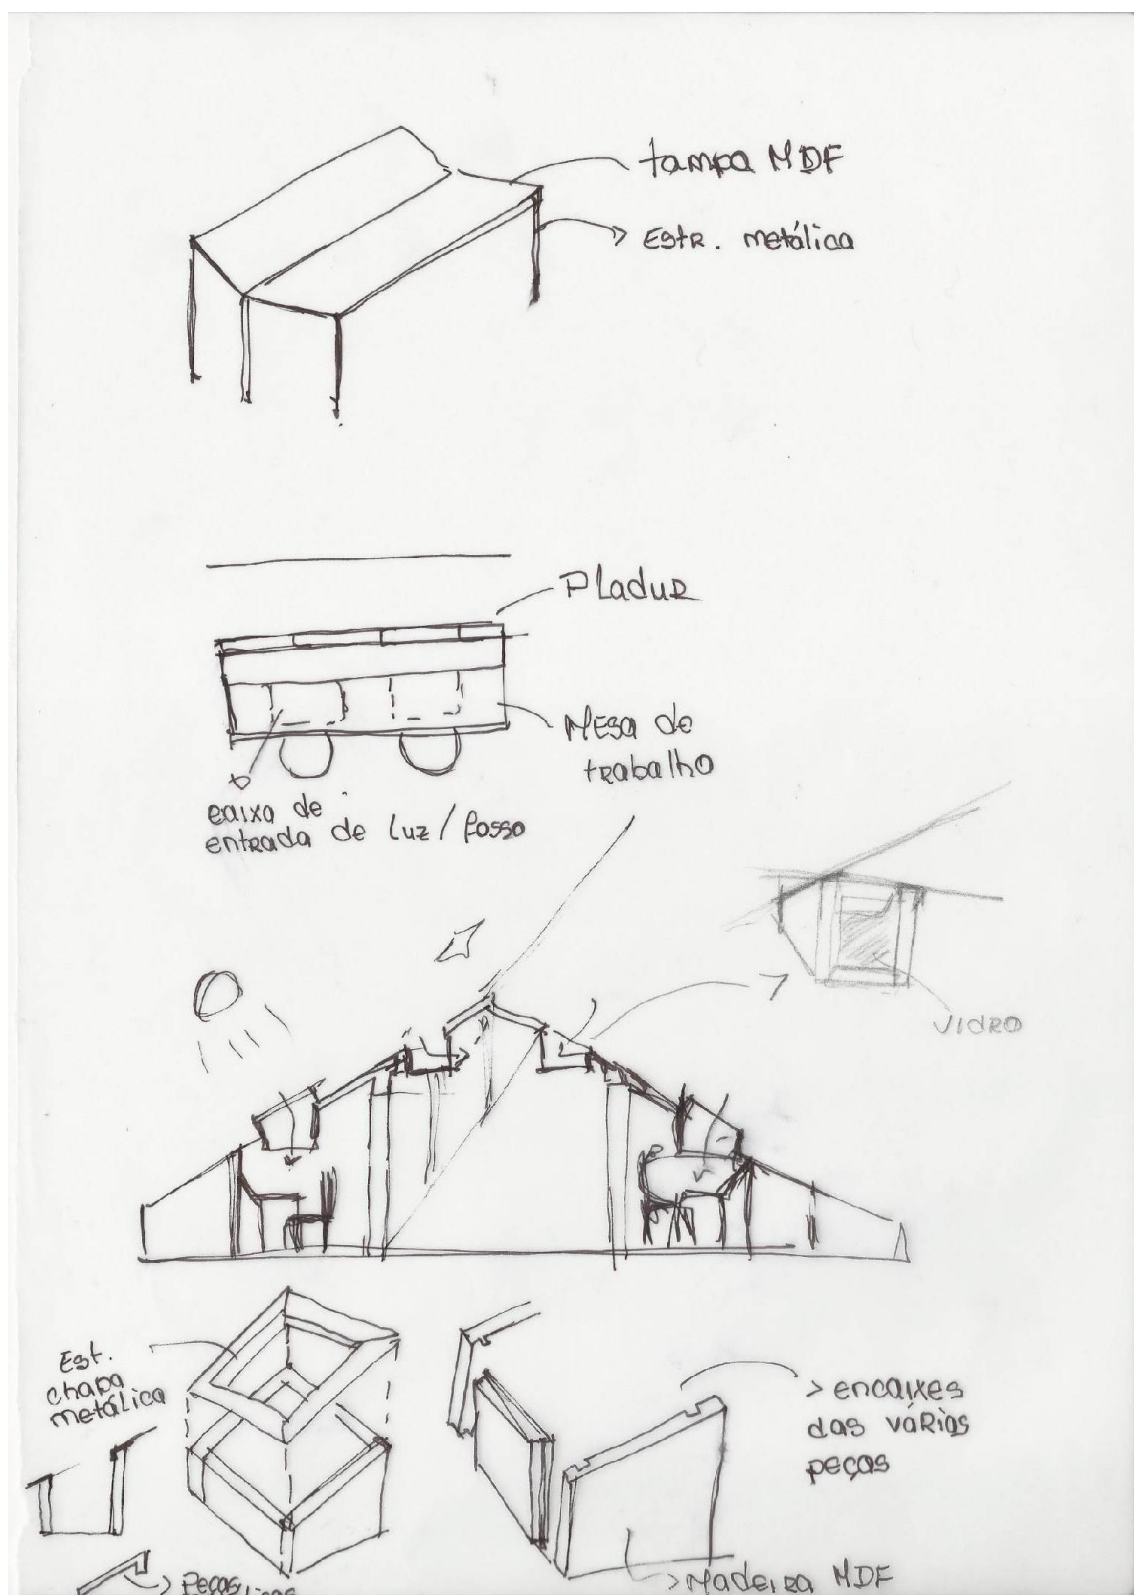 tampa MDF
Estr. metálica
Pladur
Mesa de
trabalho
caixa de
entrada de luz / fosso
VIDRO
Est.
chapa
metálica
encaixes
das várias
peças
Peças
Madeira MDF